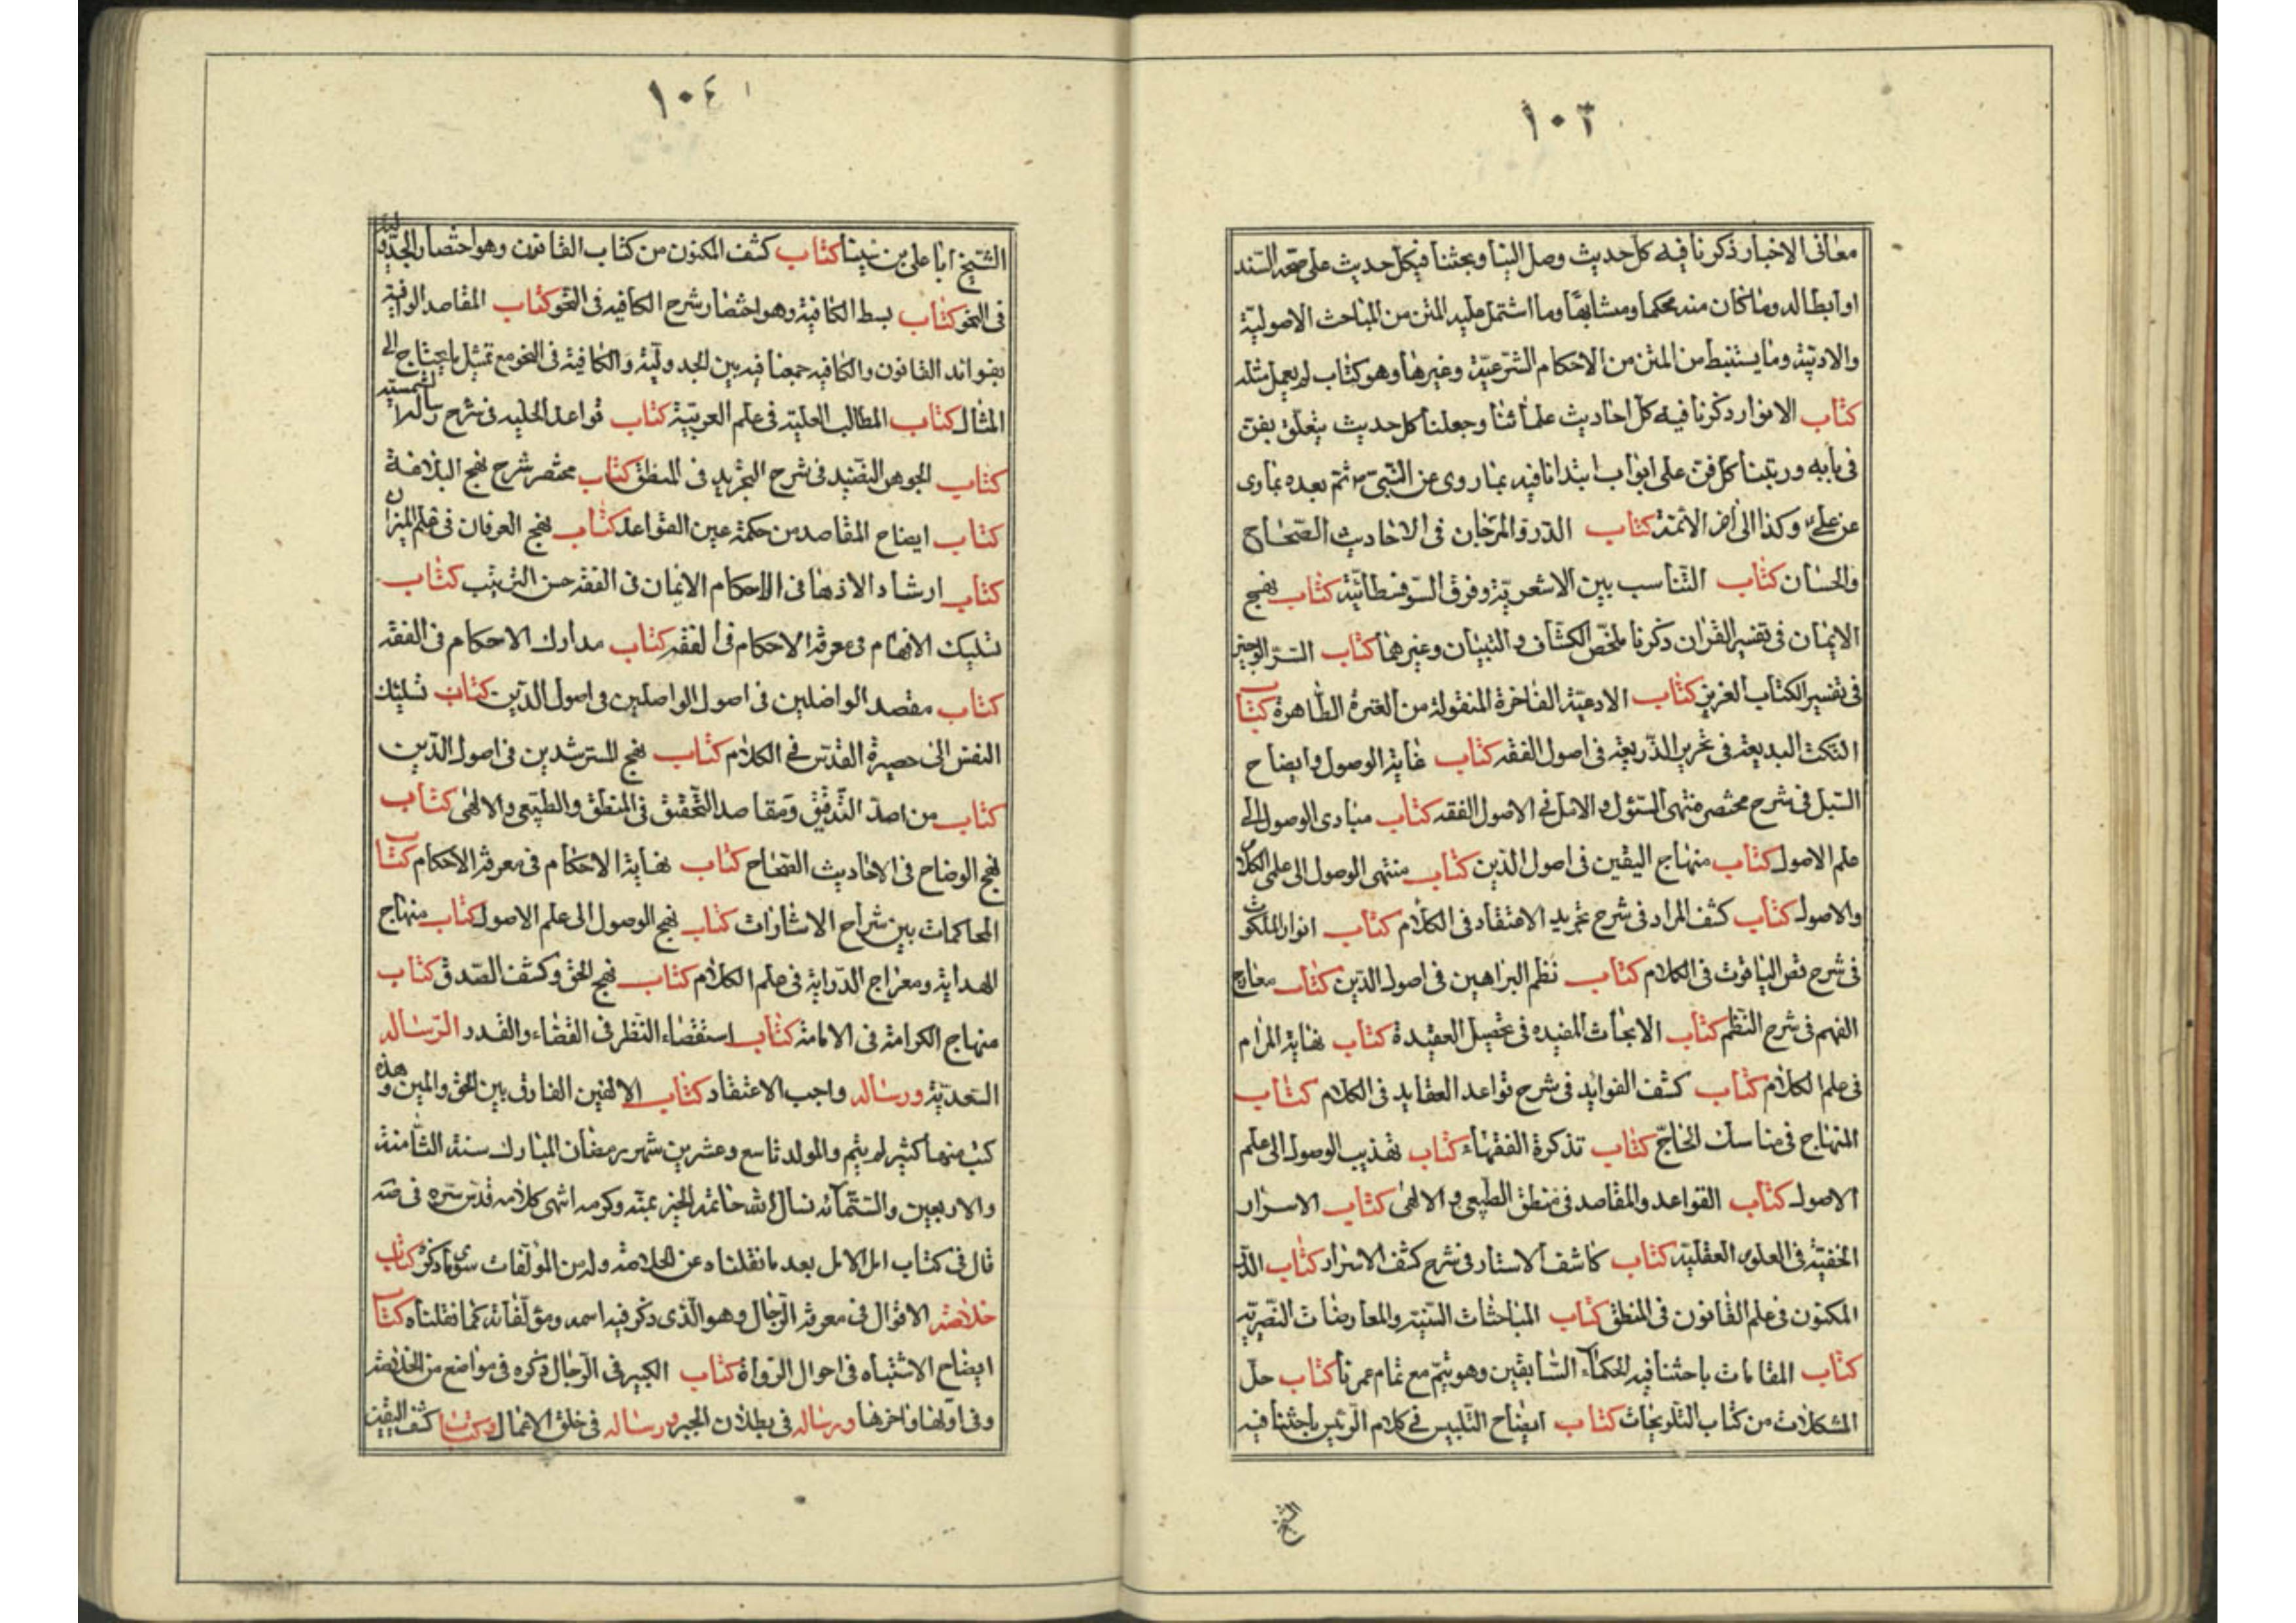 ١٠٣
معانى الاخبار ذكرنا فيه كل حديث وصل الينا وبحثنا فيكل حديث على صحة السند
او ابطاله وما كان منه محكما ومتشابها وما اشتمل عليه المتن من المباحث الاصولية
والادبية وما يستنبط من المتن من الاحكام الشرعية وغيرها وهو كتاب لم يعمل مثله
كتاب الانوار ذكرنا فيه كل احاديث علمائنا وجعلنا كل حديث يتعلق بفن
فى بابه ورتبنا كل فن على ابواب ابتدانا فيه بما روى عن النبى ص ثم بعده بما روى
عن على وكذا الى اخر الائمة كتاب الدر والمرجان فى الاحاديث الصحاح
والحسان كتاب التناسب بين الاشعرية وفرق السوفسطائية كتاب نهج
الايمان فى تفسير القران ذكرنا ملخص الكشاف والتبيان وغيرهما كتاب السر الوجيز
فى تفسير الكتاب العزيز كتاب الادعية الفاخرة المنقولة من العترة الطاهرة كتاب
النكت البديعة فى تحرير الذريعة فى اصول الفقه كتاب غاية الوصول وايضاح
السبل فى شرح مختصر منتهى السئول والامل فى الاصول الفقه كتاب مبادى الوصول الى
علم الاصول كتاب منهاج اليقين فى اصول الدين كتاب منتهى الوصول الى علمى الكلام
والاصول كتاب كشف المراد فى شرح تجريد الاعتقاد فى الكلام كتاب انوار الملكوت
فى شرح فص الياقوت فى الكلام كتاب نظم البراهين فى اصول الدين كتاب معارج
الفهم فى شرح النظم كتاب الابحاث المفيده فى تحصيل العقيدة كتاب نهاية المرام
فى علم الكلام كتاب كشف الفوايد فى شرح قواعد العقايد فى الكلام كتاب
المنهاج فى مناسك الحاج كتاب تذكرة الفقهاء كتاب تهذيب الوصول الى علم
الاصول كتاب القواعد والمقاصد فى منطق الطبيعى والالهى كتاب الاسرار
الخفية فى العلوم العقلية كتاب كاشف الاستار فى شرح كشف الاسرار كتاب الدر
المكنون فى علم القانون فى المنطق كتاب المباحثات السنية والمعارضات النصرية
كتاب المقامات باحثنا فيه الحكماء السابقين وهو يتم مع تمام عمرنا كتاب حل
المشكلات من كتاب التلويحات كتاب ايضاح التلبيس فى كلام الرئيس باحثنا فيه
الشيخ
١٠٤
الشيخ ابا على بن سينا كتاب كشف المكنون من كتاب القانون وهو اختصار الجزولية
فى النحو كتاب بسط الكافية وهو اختصار شرح الكافيه فى النحو كتاب المقاصد الوافية
بفوائد القانون والكافيه جمعنا فيه بين الجدولية والكافية فى النحو مع تمثيل ما يحتاج الى
المثال كتاب المطالب العلية فى علم العربية كتاب قواعد الجليه فى شرح رسالة الشمسية
كتاب الجوهر النضيد فى شرح التجريد فى المنطق كتاب مختصر شرح نهج البلاغة
كتاب ايضاح المقاصد من حكمة عين القواعد كتاب نهج العرفان فى علم الميزان
كتاب ارشاد الاذهان فى الاحكام الايمان فى الفقه حسن الترتيب كتاب
تسليك الافهام فى معرفة الاحكام فى الفقه كتاب مدارك الاحكام فى الفقه
كتاب مقصد الواصلين فى اصول الواصلين فى اصول الدين كتاب تسليك
النفس الى حصيرة القدس فى الكلام كتاب نهج المسترشدين فى اصول الدين
كتاب مراصد التدقيق ومقاصد التحقيق فى المنطق والطبيعى والالهى كتاب
نهج الوضاح فى الاحاديث الصحاح كتاب نهاية الاحكام فى معرفة الاحكام كتاب
المحاكمات بين شراح الاشارات كتاب نهج الوصول الى علم الاصول كتاب منهاج
الهداية ومعراج الدراية فى علم الكلام كتاب نهج الحق وكشف الصدق كتاب
منهاج الكرامة فى الامامة كتاب استقصاء النظر فى القضاء والقدر الرساله
السعدية ورساله واجب الاعتقاد كتاب الالفين الفارق بين الحق والمين وهذه
كتب منها كثير لم يتم والمولد تاسع وعشرين شهر رمضان المبارك سنة الثامنة
والاربعين والستمائة نسال الله خاتمة الخير بمنه وكرمه انتهى كلامه قدس سره فى صه
قال فى كتاب امل الامل بعد ما نقلناه عن الخلاصة وله من المؤلفات سوى ما ذكره كتاب
خلاصة الاقوال فى معرفة الرجال وهو الذى ذكر فيه اسمه ومؤلفاته كما نقلناه كتاب
ايضاح الاشتباه فى احوال الرواة كتاب الكبير فى الرجال ذكره فى مواضع من الخلاصة
وفى اولها واخرها ورساله فى بطلان الجبر ورساله فى خلق الاعمال وكتاب كشف اليقين